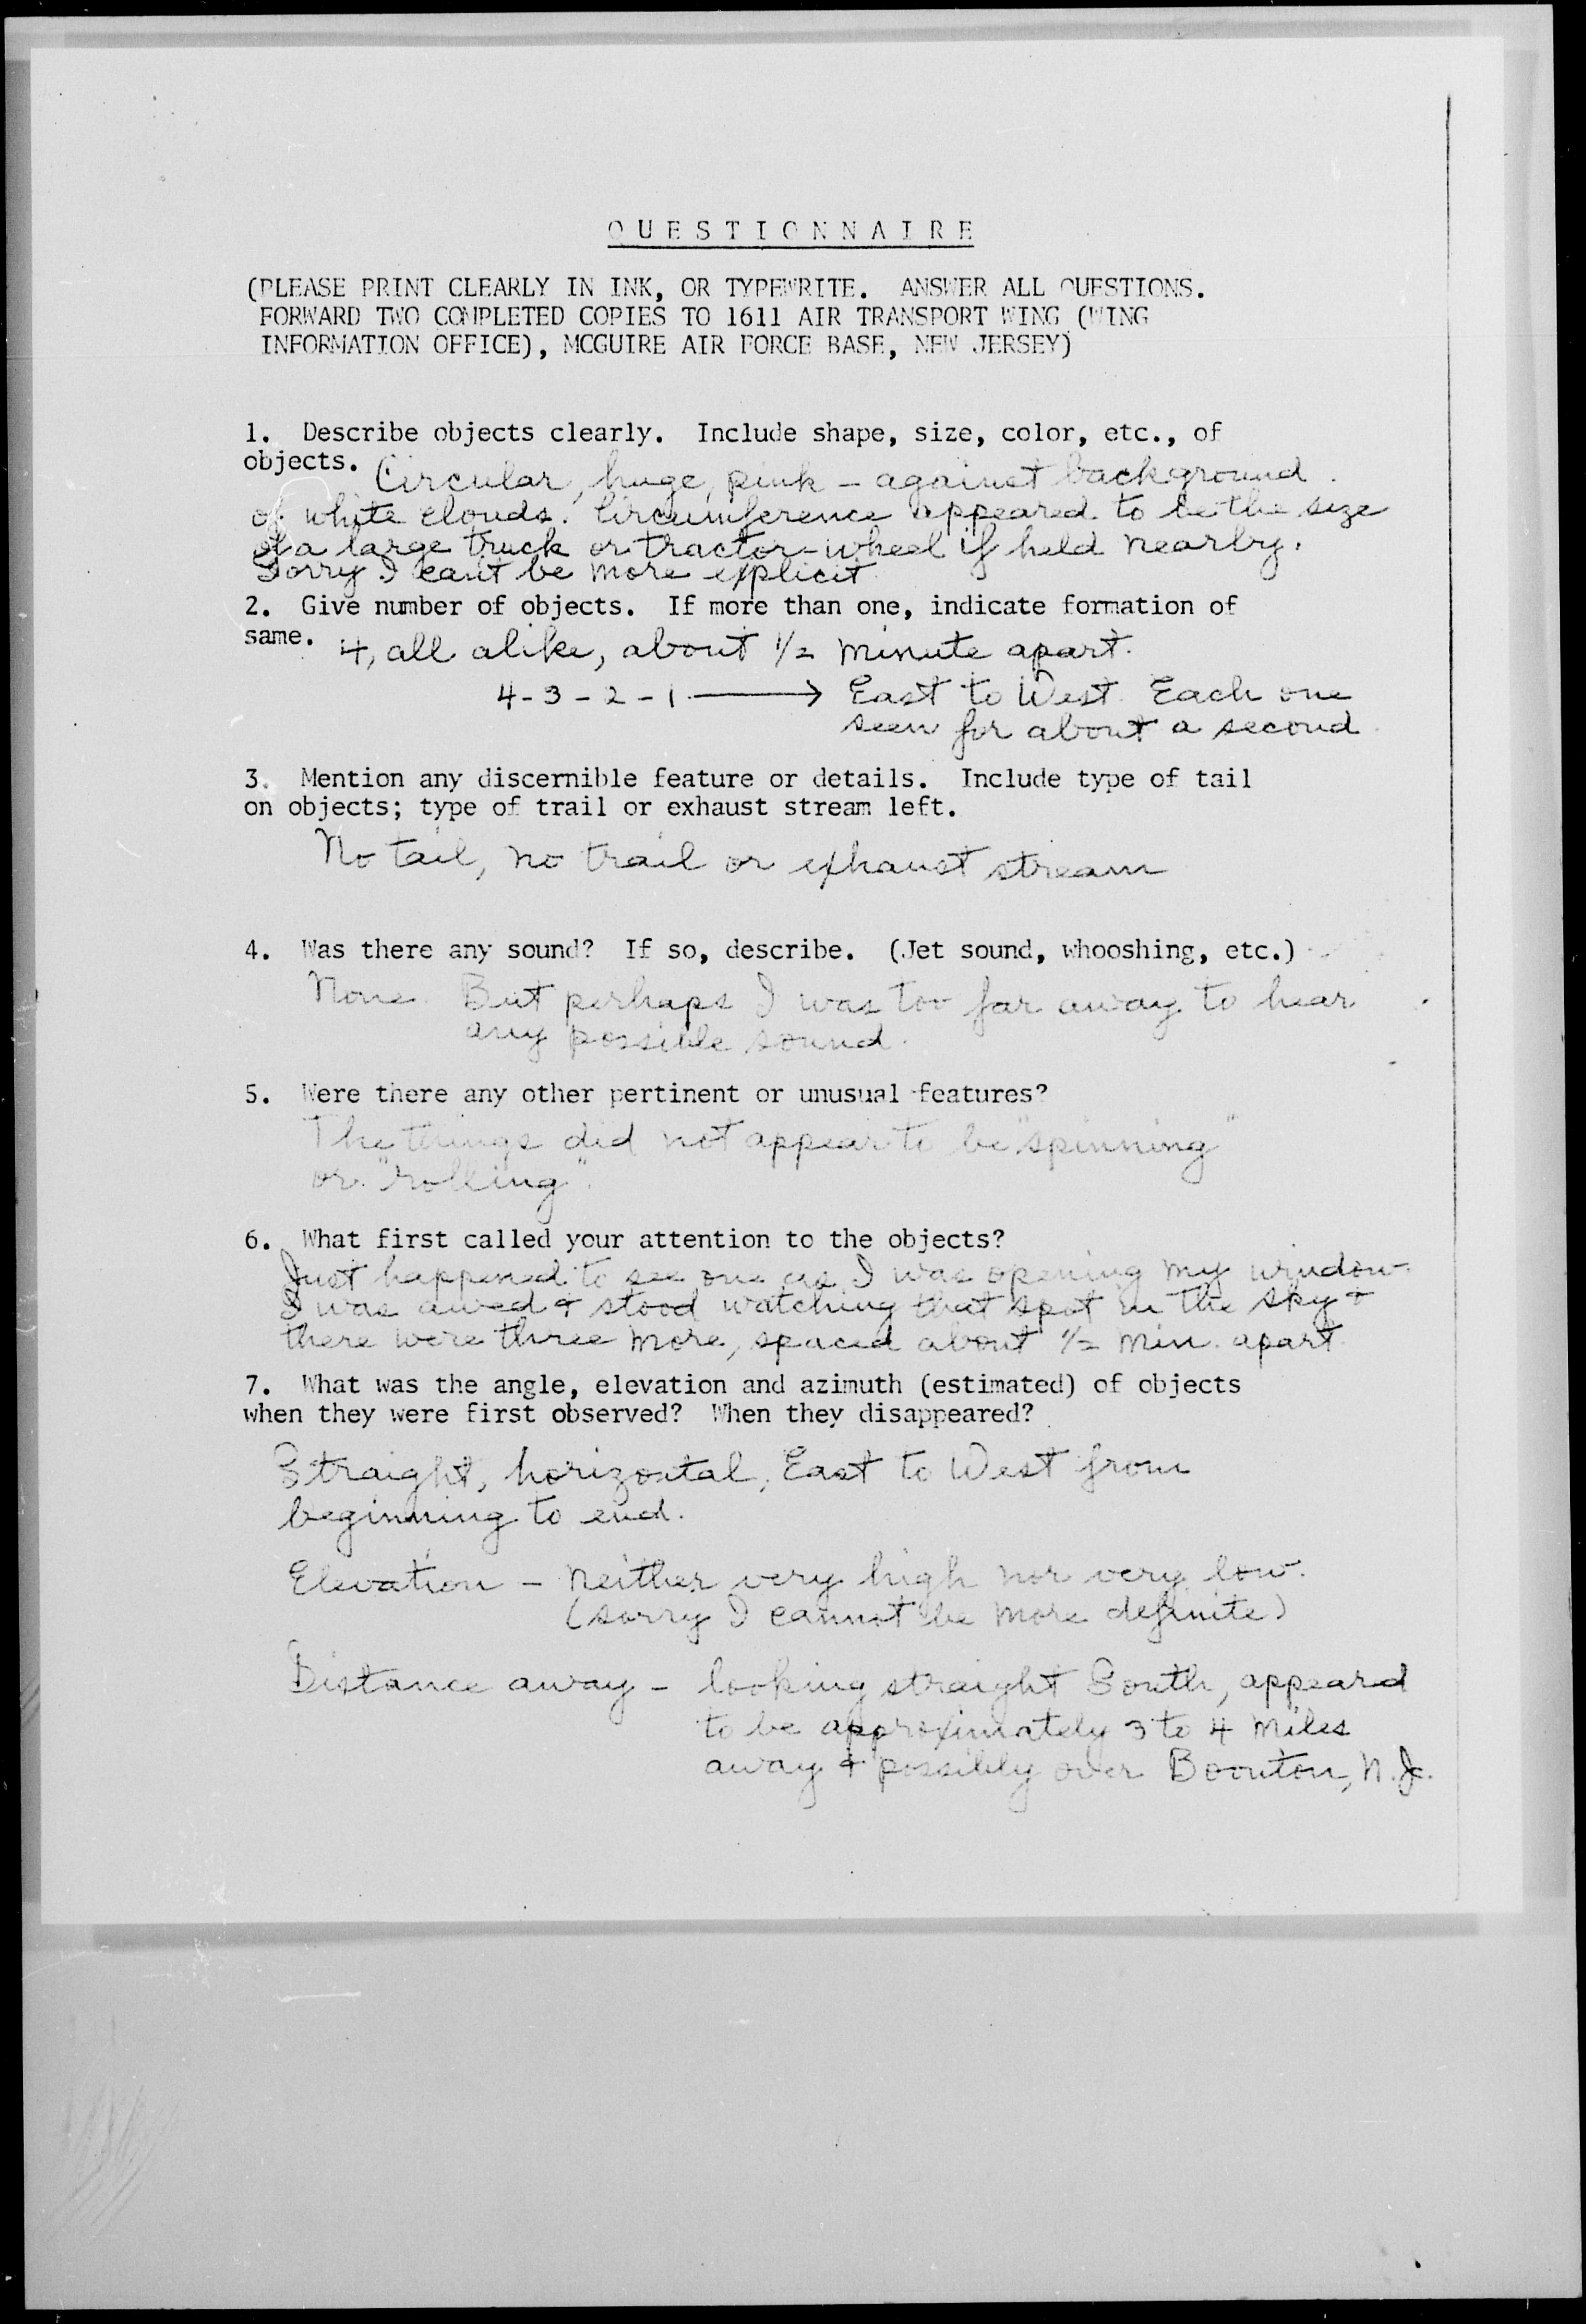 QUESTIONNAIRE
(PLEASE PRINT CLEARLY IN INK, OR TYPEWRITE. ANSWER ALL QUESTIONS.
FORWARD TWO COMPLETED COPIES TO 1611 AIR TRANSPORT WING (WING
INFORMATION OFFICE), MCGUIRE AIR FORCE BASE, NEW JERSEY)
1. Describe objects clearly. Include shape, size, color, etc., of
objects. Circular, huge, pink - against background
of white clouds. Circumference appeared to be the size
of a large truck or tractor-wheel if held nearby.
Sorry I can't be more explicit
2. Give number of objects. If more than one, indicate formation of
same. 4, all alike, about 1/2 minute apart.
4-3-2-1 → East to West. Each one
seen for about a second
3. Mention any discernible feature or details. Include type of tail
on objects; type of trail or exhaust stream left.
No tail, no trail or exhaust stream
4. Was there any sound? If so, describe. (Jet sound, whooshing, etc.)
None. But perhaps I was too far away to hear
any possible sound.
5. Were there any other pertinent or unusual features?
The things did not appear to be "spinning"
or "rolling".
6. What first called your attention to the objects?
Just happened to see one as I was opening my window.
I was awed & stood watching that spot in the sky &
there were three more, spaced about 1/2 min. apart.
7. What was the angle, elevation and azimuth (estimated) of objects
when they were first observed? When they disappeared?
Straight, horizontal, East to West from
beginning to end.
Elevation - Neither very high nor very low.
(sorry I cannot be more definite)
Distance away - looking straight South, appeared
to be approximately 3 to 4 miles
away & possibly over Boonton, N.J.